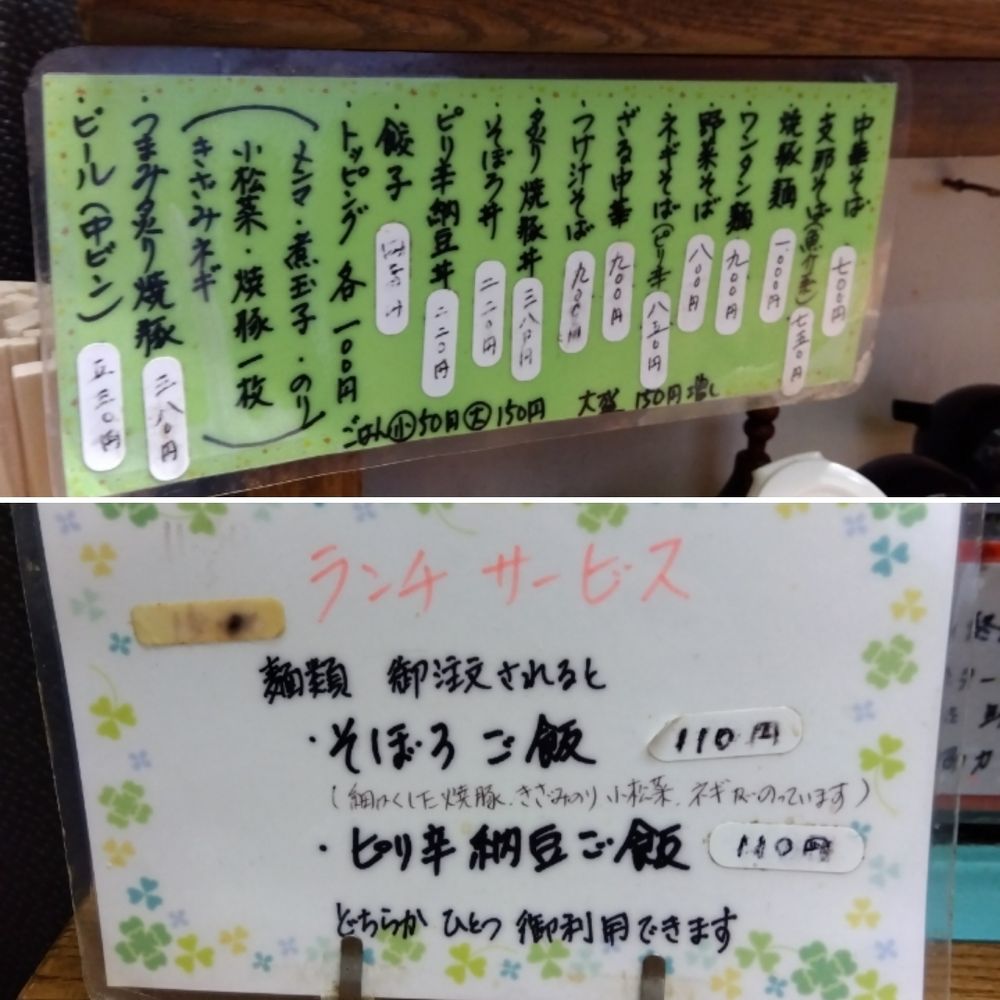 ・中華そば 七〇〇円
・支那そば(魚介巻) 七五〇円
・焼豚麺 一、〇〇〇円
・ワンタン麺 九〇〇円
・野菜そば 八〇〇円
・ネギそば(ピリ辛) 八五〇円
・ざる中華 九〇〇円
・つけ汁そば 九〇〇円
・炙り焼豚丼 三八〇円
・そぼろ丼 二二〇円
・ピリ辛納豆丼 二二〇円
・餃子
・トッピング 各 一〇〇円
(メンマ・煮玉子・のり
小松菜・焼豚一枚
きざみネギ)
・つまみ炙り焼豚 三八〇円
・ビール(中ビン) 五三〇円
ごはん小50円大150円
大盛 150円増し
ランチ サービス
麺類 御注文されると
・そぼろご飯 110円
(細かくした焼豚、きざみのり 小松菜、ネギがのっています)
・ピリ辛納豆ご飯 110円
どちらか ひとつ 御利用できます